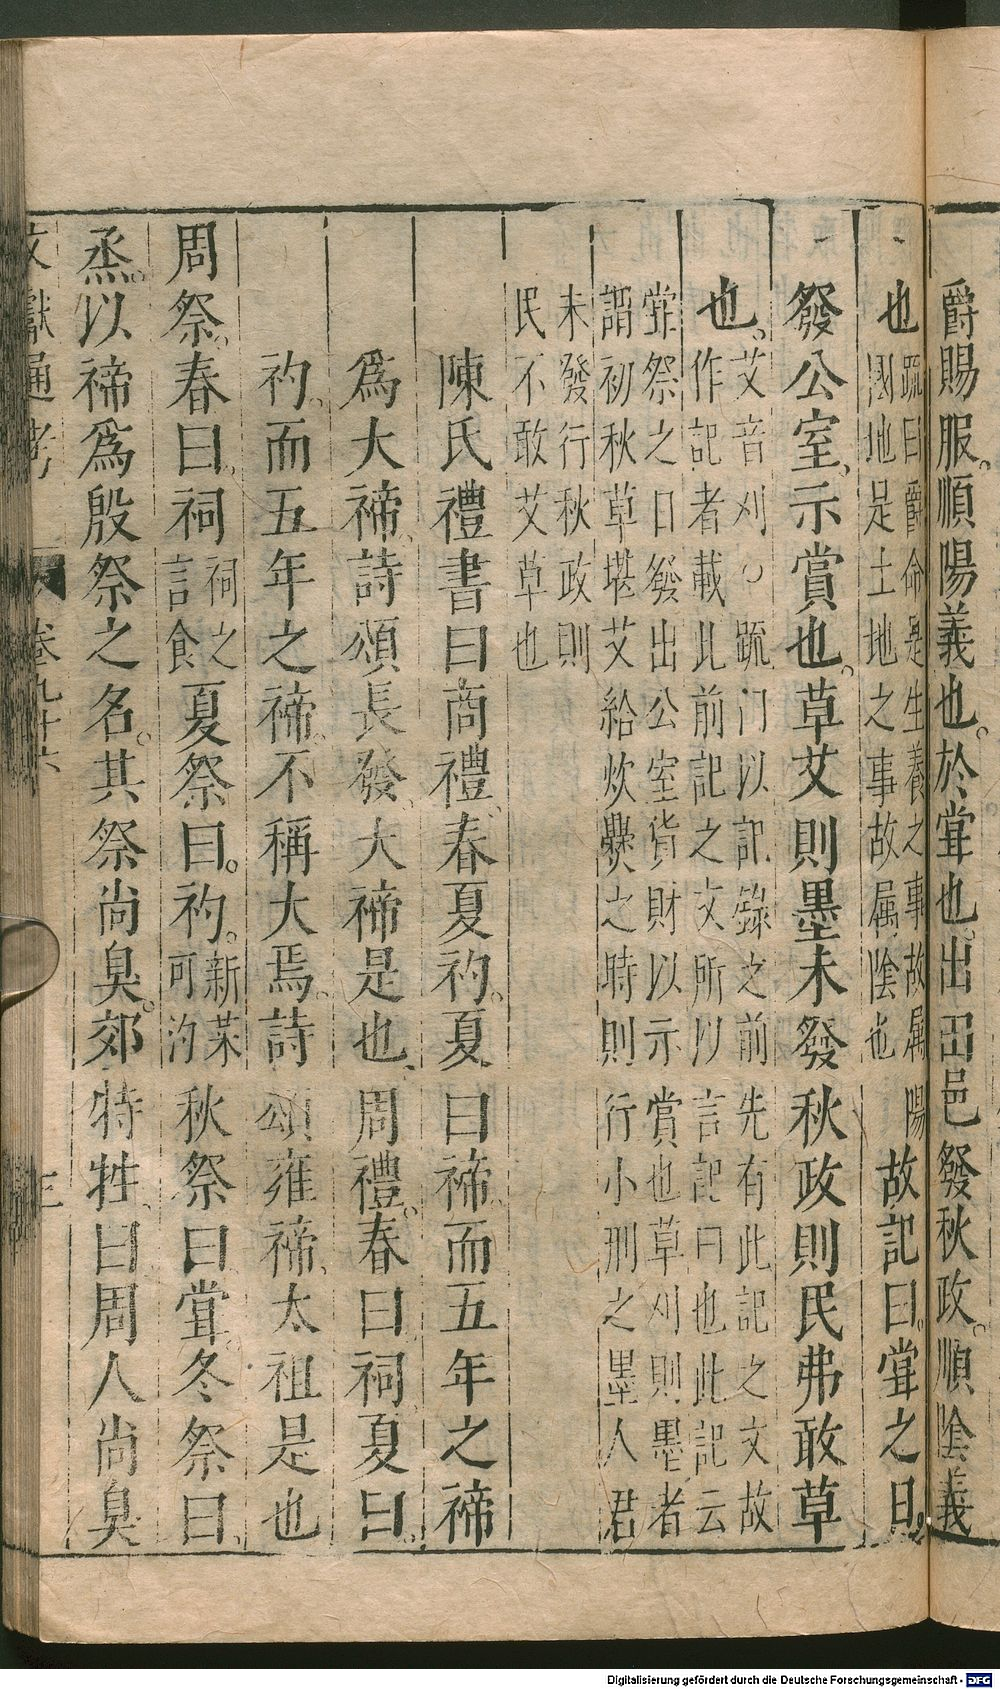 爵賜服。順陽義也。於甞也。出田邑發秋政。順陰義
也
疏曰爵命是生養之事故屬陽
國地是土地之事故屬陰也
故記曰。甞之日。
發公室。示賞也。草艾則墨未發秋政則民弗敢草
也。
艾音刈○疏門以記錄之前先有此記之文故
作記者載此前記之文所以言記曰也此記云
甞祭之日發出公室貨財以示賞也草刈則墨者
謂初秋草堪艾給炊爨之時則行小刑之墨人君
未發行秋政則
民不敢艾草也
陳氏禮書曰商禮、春夏礿。夏曰禘、而五年之禘
爲大禘、詩頌長發、大禘是也、周禮。春曰祠夏曰。
礿、而五年之禘、不稱大焉。詩頌雍禘、太祖是也
周祭。春曰、祠
祠之
言食
夏祭曰。礿。
新菜
可汋
秋祭曰甞。冬祭曰、
烝。以禘爲殷祭之名。其祭尚臭。郊特牲、曰周人尚臭
文獻通考 卷九十六 三
Digitalisierung gefördert durch die Deutsche Forschungsgemeinschaft - DFG